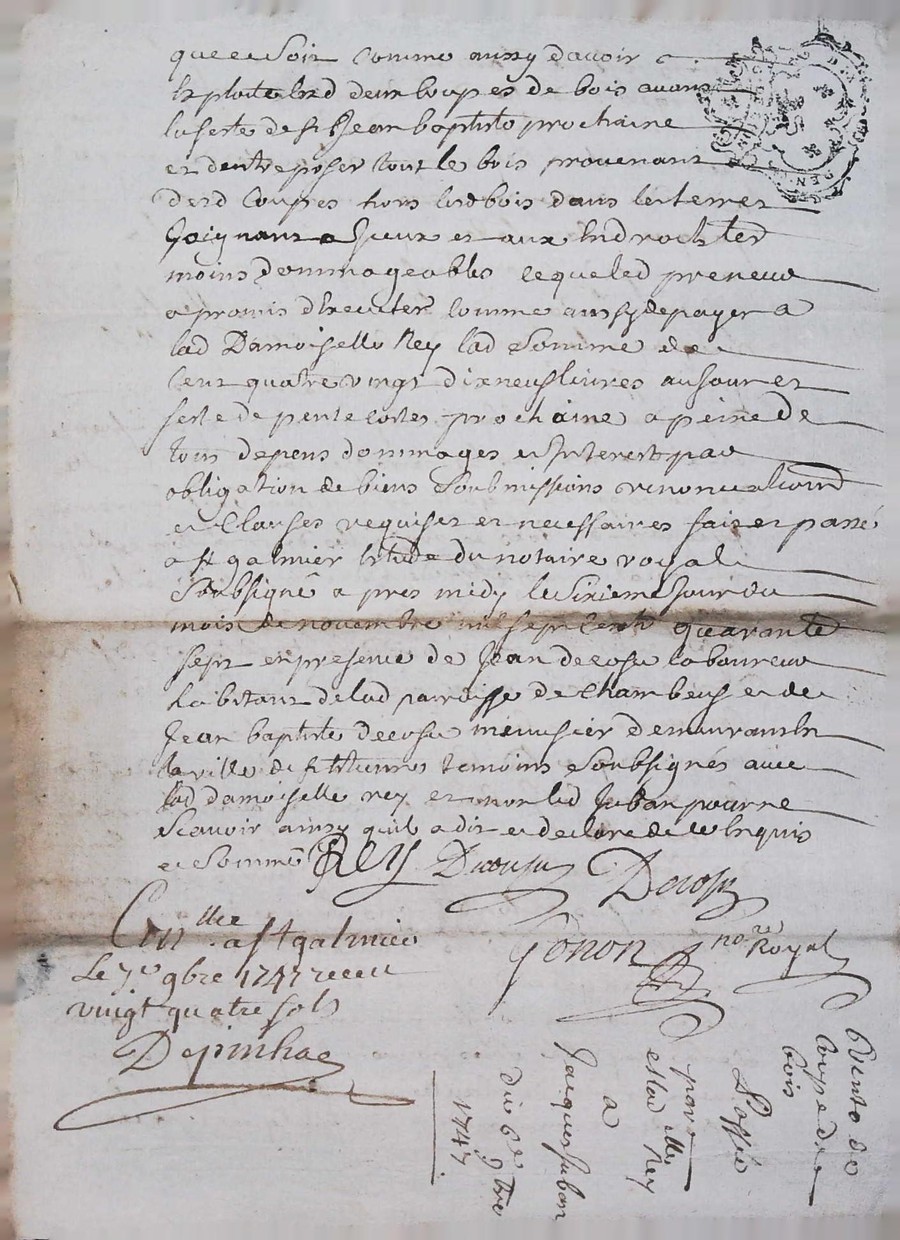 que ce soit comme aussy davoir
Exploité lesd deux coupes de bois avant
la feste de st Jean baptiste prochaine
et dentreposer tout le bois provenant
desd coupes hors lesd bois dans les terres
Joignant a Iceux et aux Endroits les
moins dommageables ce que led preneur
a promis dExecuter comme aussy de payer a
lad Damoiselle Rey lad somme de
Cent quatre vingt dix neuf livres au jour et
feste de pentecostes prochaine a peine de
tous depens dommages et Interests par
obligation de biens soubmissions renonciations
et Clauses requises et necessaires fait et passé
a st galmier Etude du notaire royal
soubsigné apres midy le sixieme jour du
mois de novembre mil sept cent quarante
sept en presence de Jean decosu laboureur
habitant de lad parroisse de Chambeuf et de
Jean baptiste decosu menusier demeurant En
la ville de st Etienne temoins soubsignés avec
lad damoiselle rey et non led Juban pour ne
scavoir ainsy quil a dit et declaré de ce Enquis
et sommé Rey Decousu Decosu
Gonon nore Royal
Con lle a st galmier
Le 7e 9bre 1747 receu
vingt quatre sols
Depinhac
Vente de
coupe de
bois
passée
par
Mad lle Rey
a
Jacques Juban
du 6e 9bre
1747